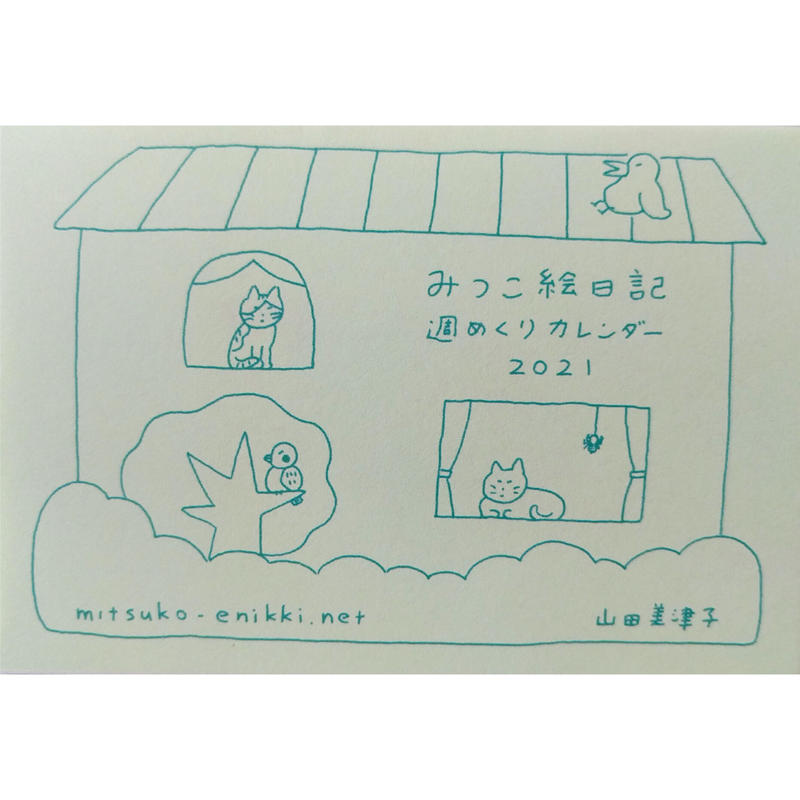 みつこ絵日記
週めくりカレンダー
2021
mitsuko-enikki.net
山田美津子